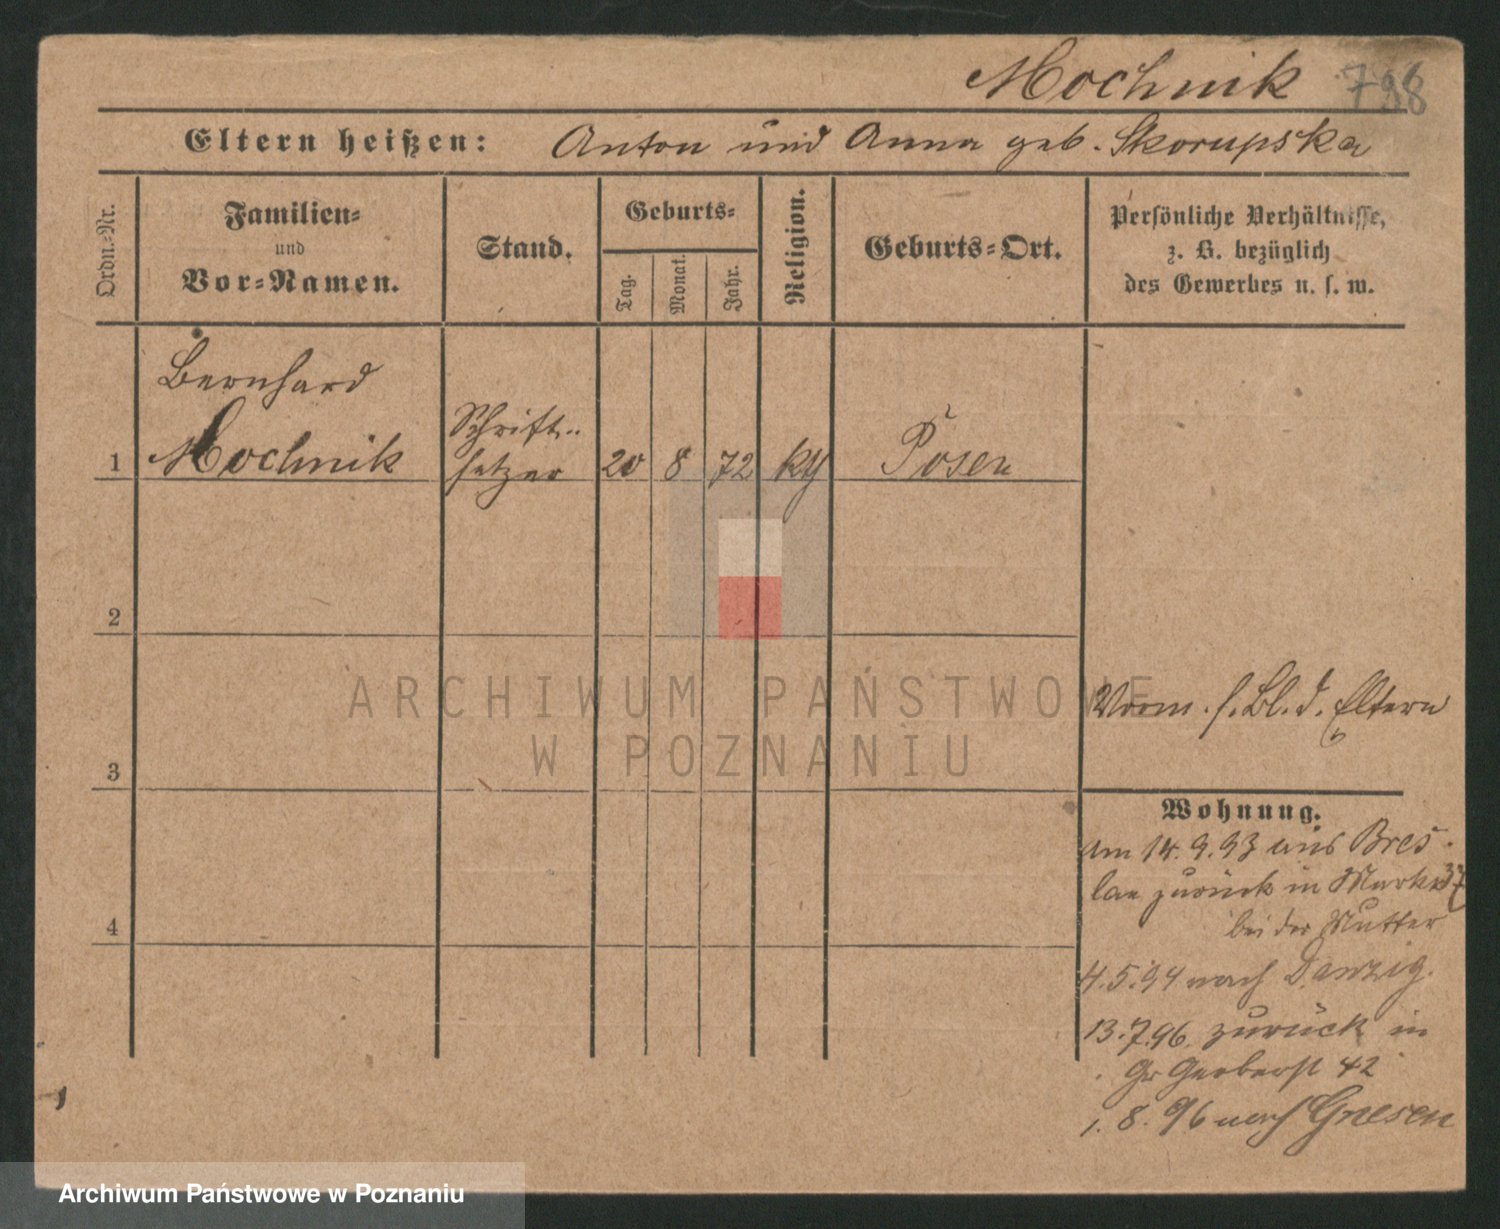 Mochnik 798
Eltern heißen: Anton und Anna geb. Skorupska
Ordn.=Nr.
Familien=
und
Vor=Namen.
Stand.
Geburts=
Tag.
Monat.
Jahr.
Religion.
Geburts=Ort.
Persönliche Verhältnisse,
z. B. bezüglich
des Gewerbes u. s. w.
Bernhard
1 Mochnik
Schrift-
setzer
20 8 72 Posen
2
3
4
Vorm. s. Bl. d. Eltern
Wohnung.
am 14.9.93 aus Bres-
lau zurück in Markt 37
bei der Mutter
4.5.94 nach Danzig.
13.7.96. zurück in
Gr Gerberst 42
1. 8. 96 nach Gnesen
ARCHIWUM PAŃSTWOWE
W POZNANIU
Archiwum Państwowe w Poznaniu